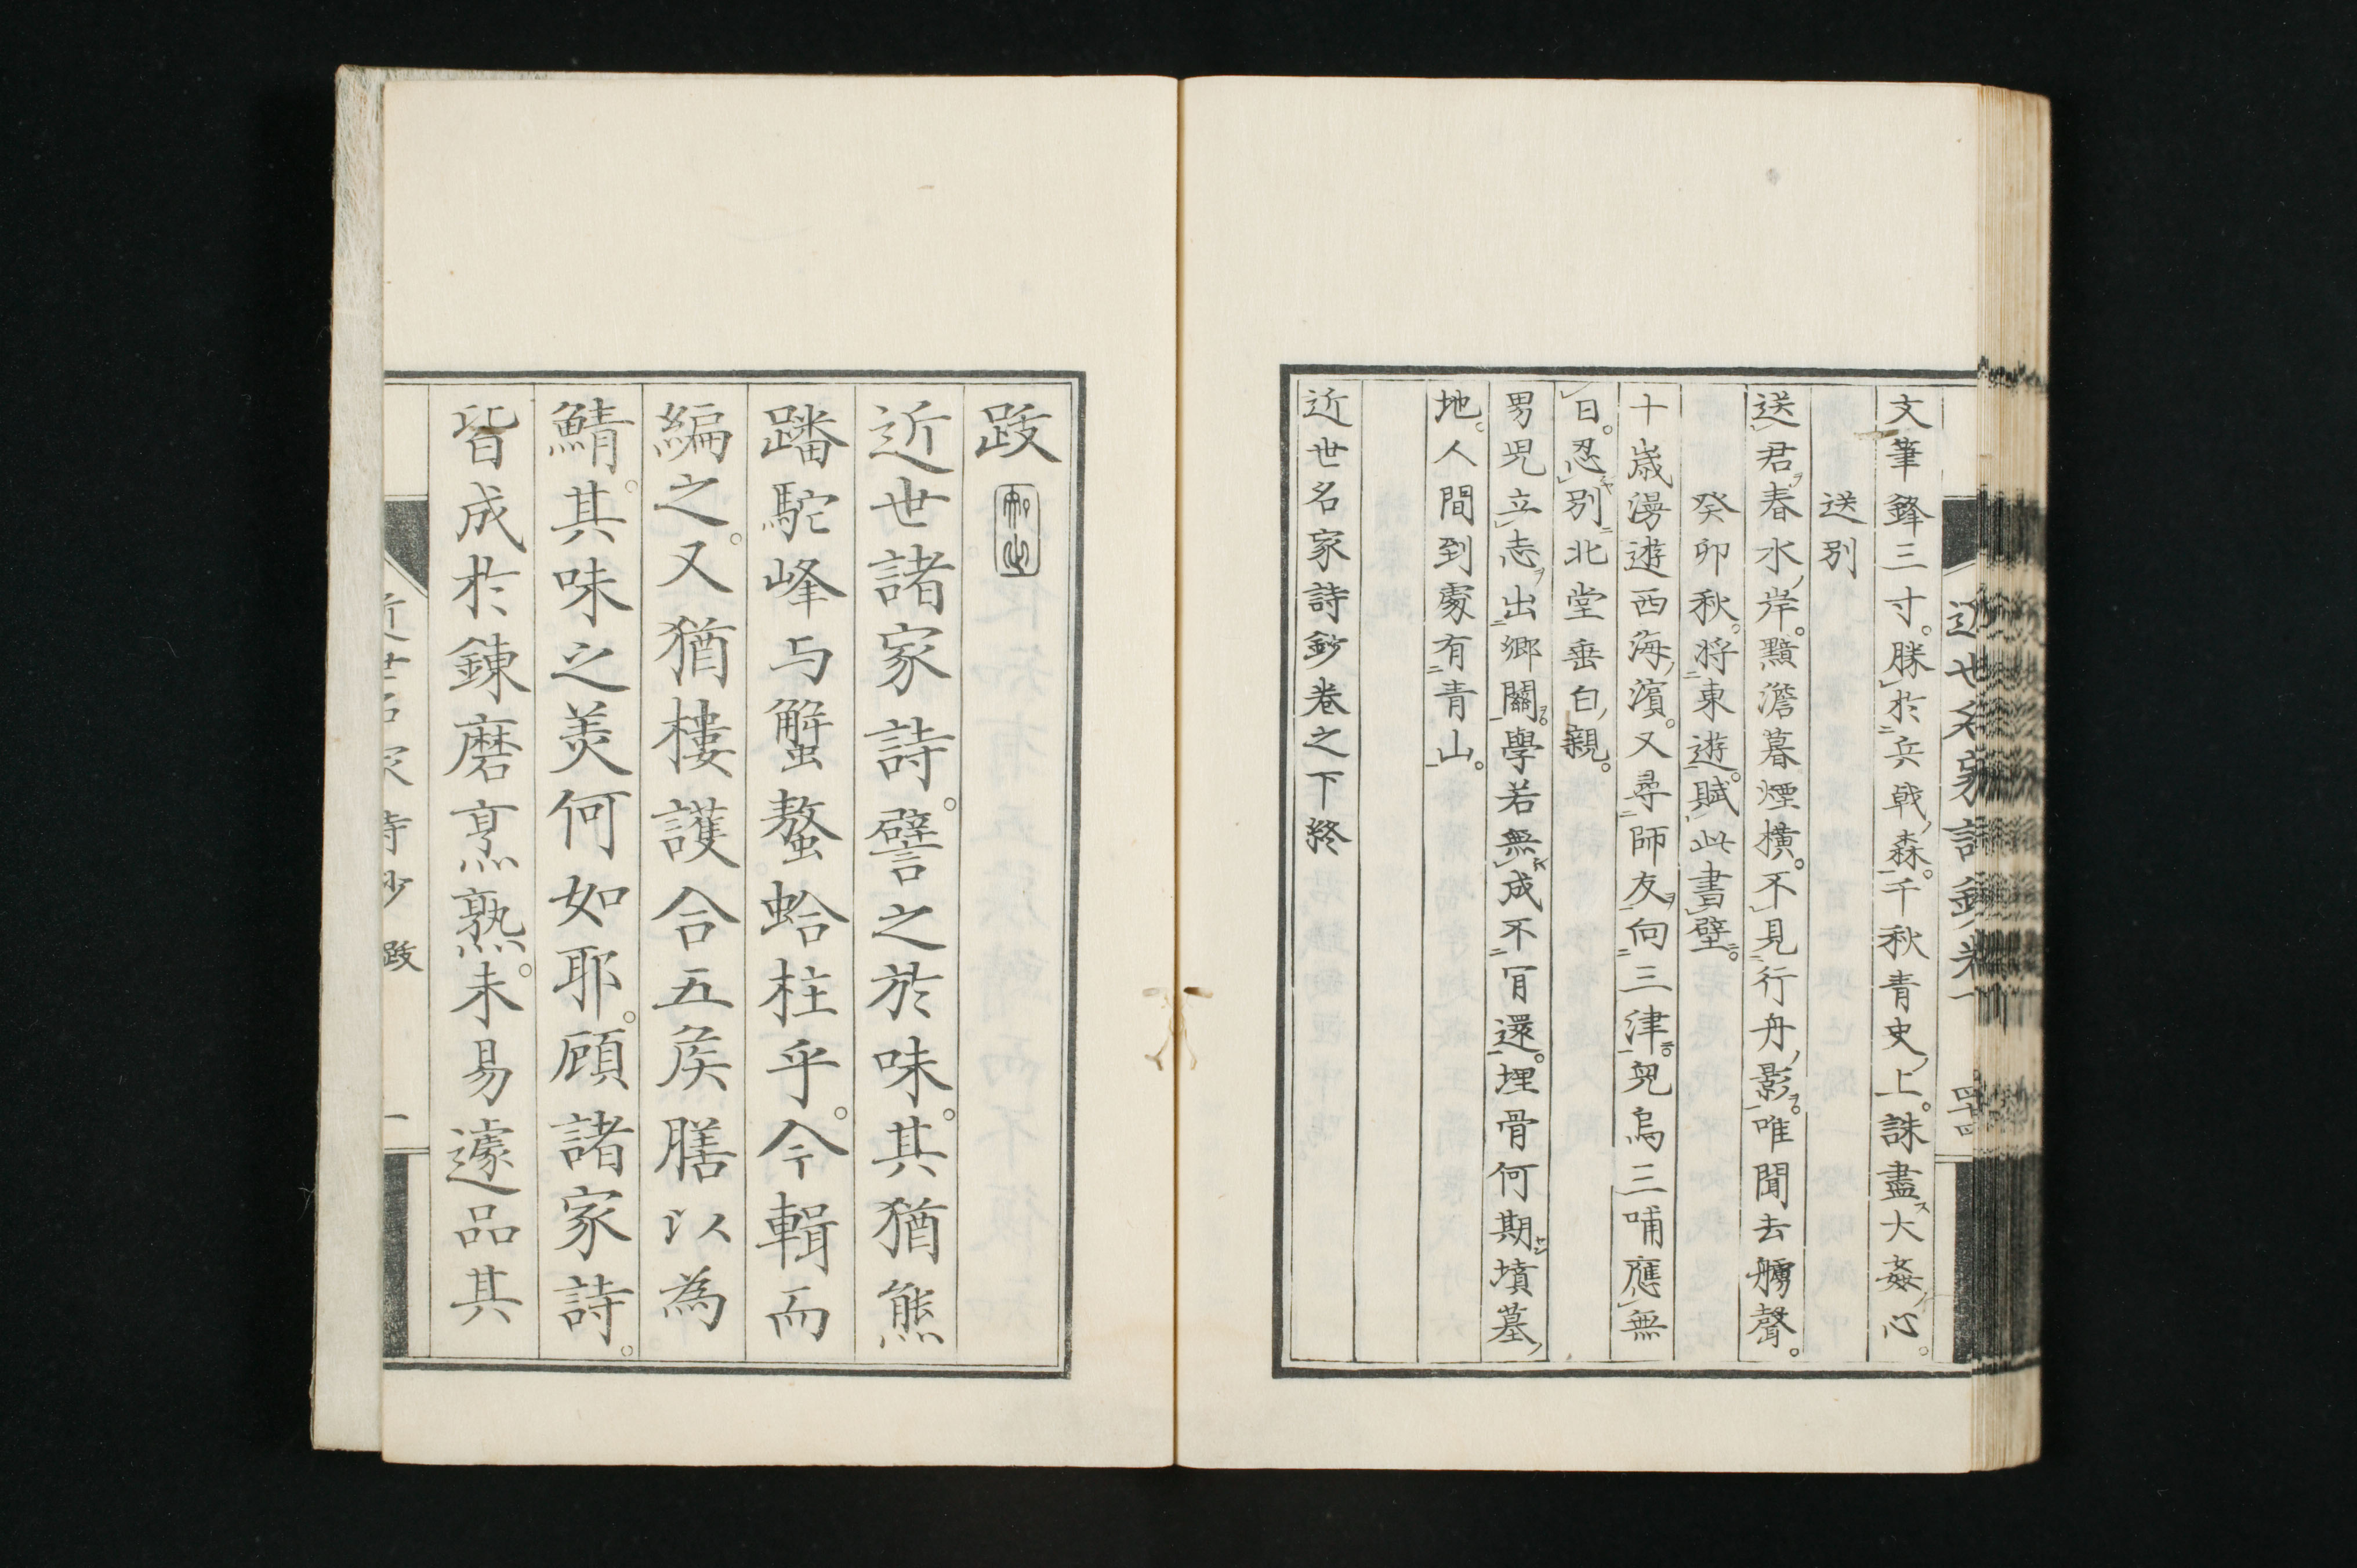 文筆鋒三寸。勝於兵戟森。千秋青史上。誅盡大姦心。
送別
送君春水岸。黯澹暮煙橫。不見行舟影。唯聞去艣聲。
癸卯秋。將東遊。賦此書壁。
十歲漫遊西海濱。又尋師友向三津。兒烏三哺應無
日。忍別北堂垂白親。
男兒立志出鄉關。學若無成不肯還。埋骨何期墳墓
地。人間到處有青山。
近世名家詩鈔卷之下終
跋
近世諸家詩。譬之於味。其猶熊
蹯駝峰与蟹螯蛤柱乎。今輯而
編之。又猶樓護合五侯膳以為
鯖。其味之美何如耶。顧諸家詩。
皆成於鍊磨烹熟。未易遽品其
近世名家詩鈔 跋 一